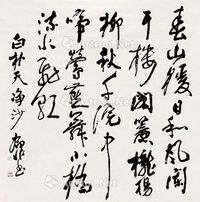 春山暖日和風闌
干樓閣簾櫳楊
柳秋千院中
啼鶯燕舞小橋
流水飛紅
白朴天净沙